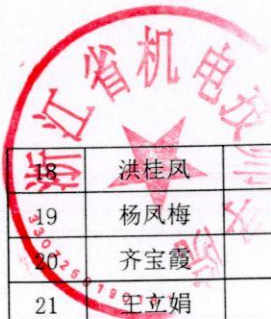 浙江省机电技师学院
18 洪桂凤
19 杨凤梅
20 齐宝霞
21 王立娟